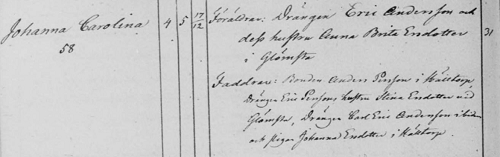 Johanna Carolina 4 5 17/12 Föräldrar: Drängen Eric Andersson och 31
58 dess hustru Anna Brita Ersdotter
i Glömsta
Faddrar: Bonden Anders Persson i
Drängen Eric Perssons hustru Stina Ersdotter vid
Glömsta, Drängen Carl Eric Andersson ibidem
och pigan Johanna Ersdotter i